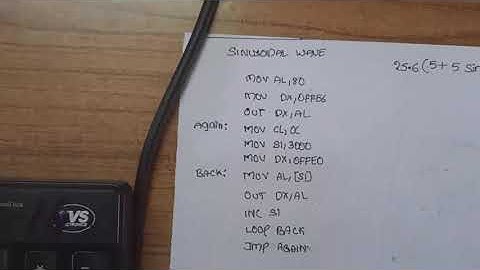 SINUSODAL WAVE
25.6(5+5 Sin
MOV AL,80
MOV DX,0FFE6
OUT DX,AL
Again: MOV CL,0C
MOV SI,3000
MOV DX,0FFE0
BACK: MOV AL,[SI]
OUT DX,AL
INC SI
LOOP BACK
JMP AGAIN
VS